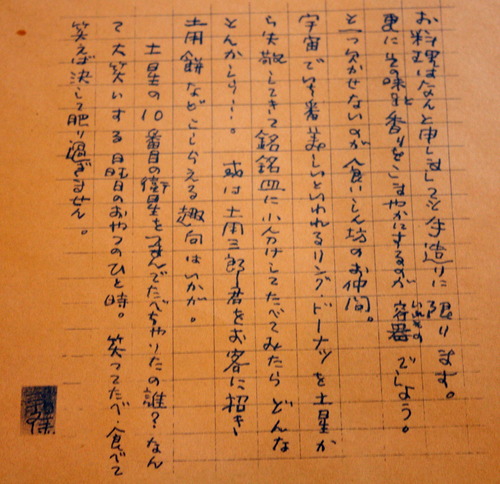 お料理はなんと申しましても手造りに限ります。
更にその味と香りをこまやかにするのが容器でしょう。
もう一つ欠かせないのが食いしん坊のお仲間。
宇宙でいち番美しいといわれるリングドーナツを土星か
ら失敬してきて銘銘皿に小分けしてたべてみたらどんな
もんかしら…。或は土用三郎君をお客に招き
土用餅などこしらえる趣向はいかが。
土星の10番目の衛星をつまんでたべちゃったの誰？なん
て大笑いする月曜日のおやつのひと時。笑ってたべ食べて
笑えば決して肥り過ぎません。